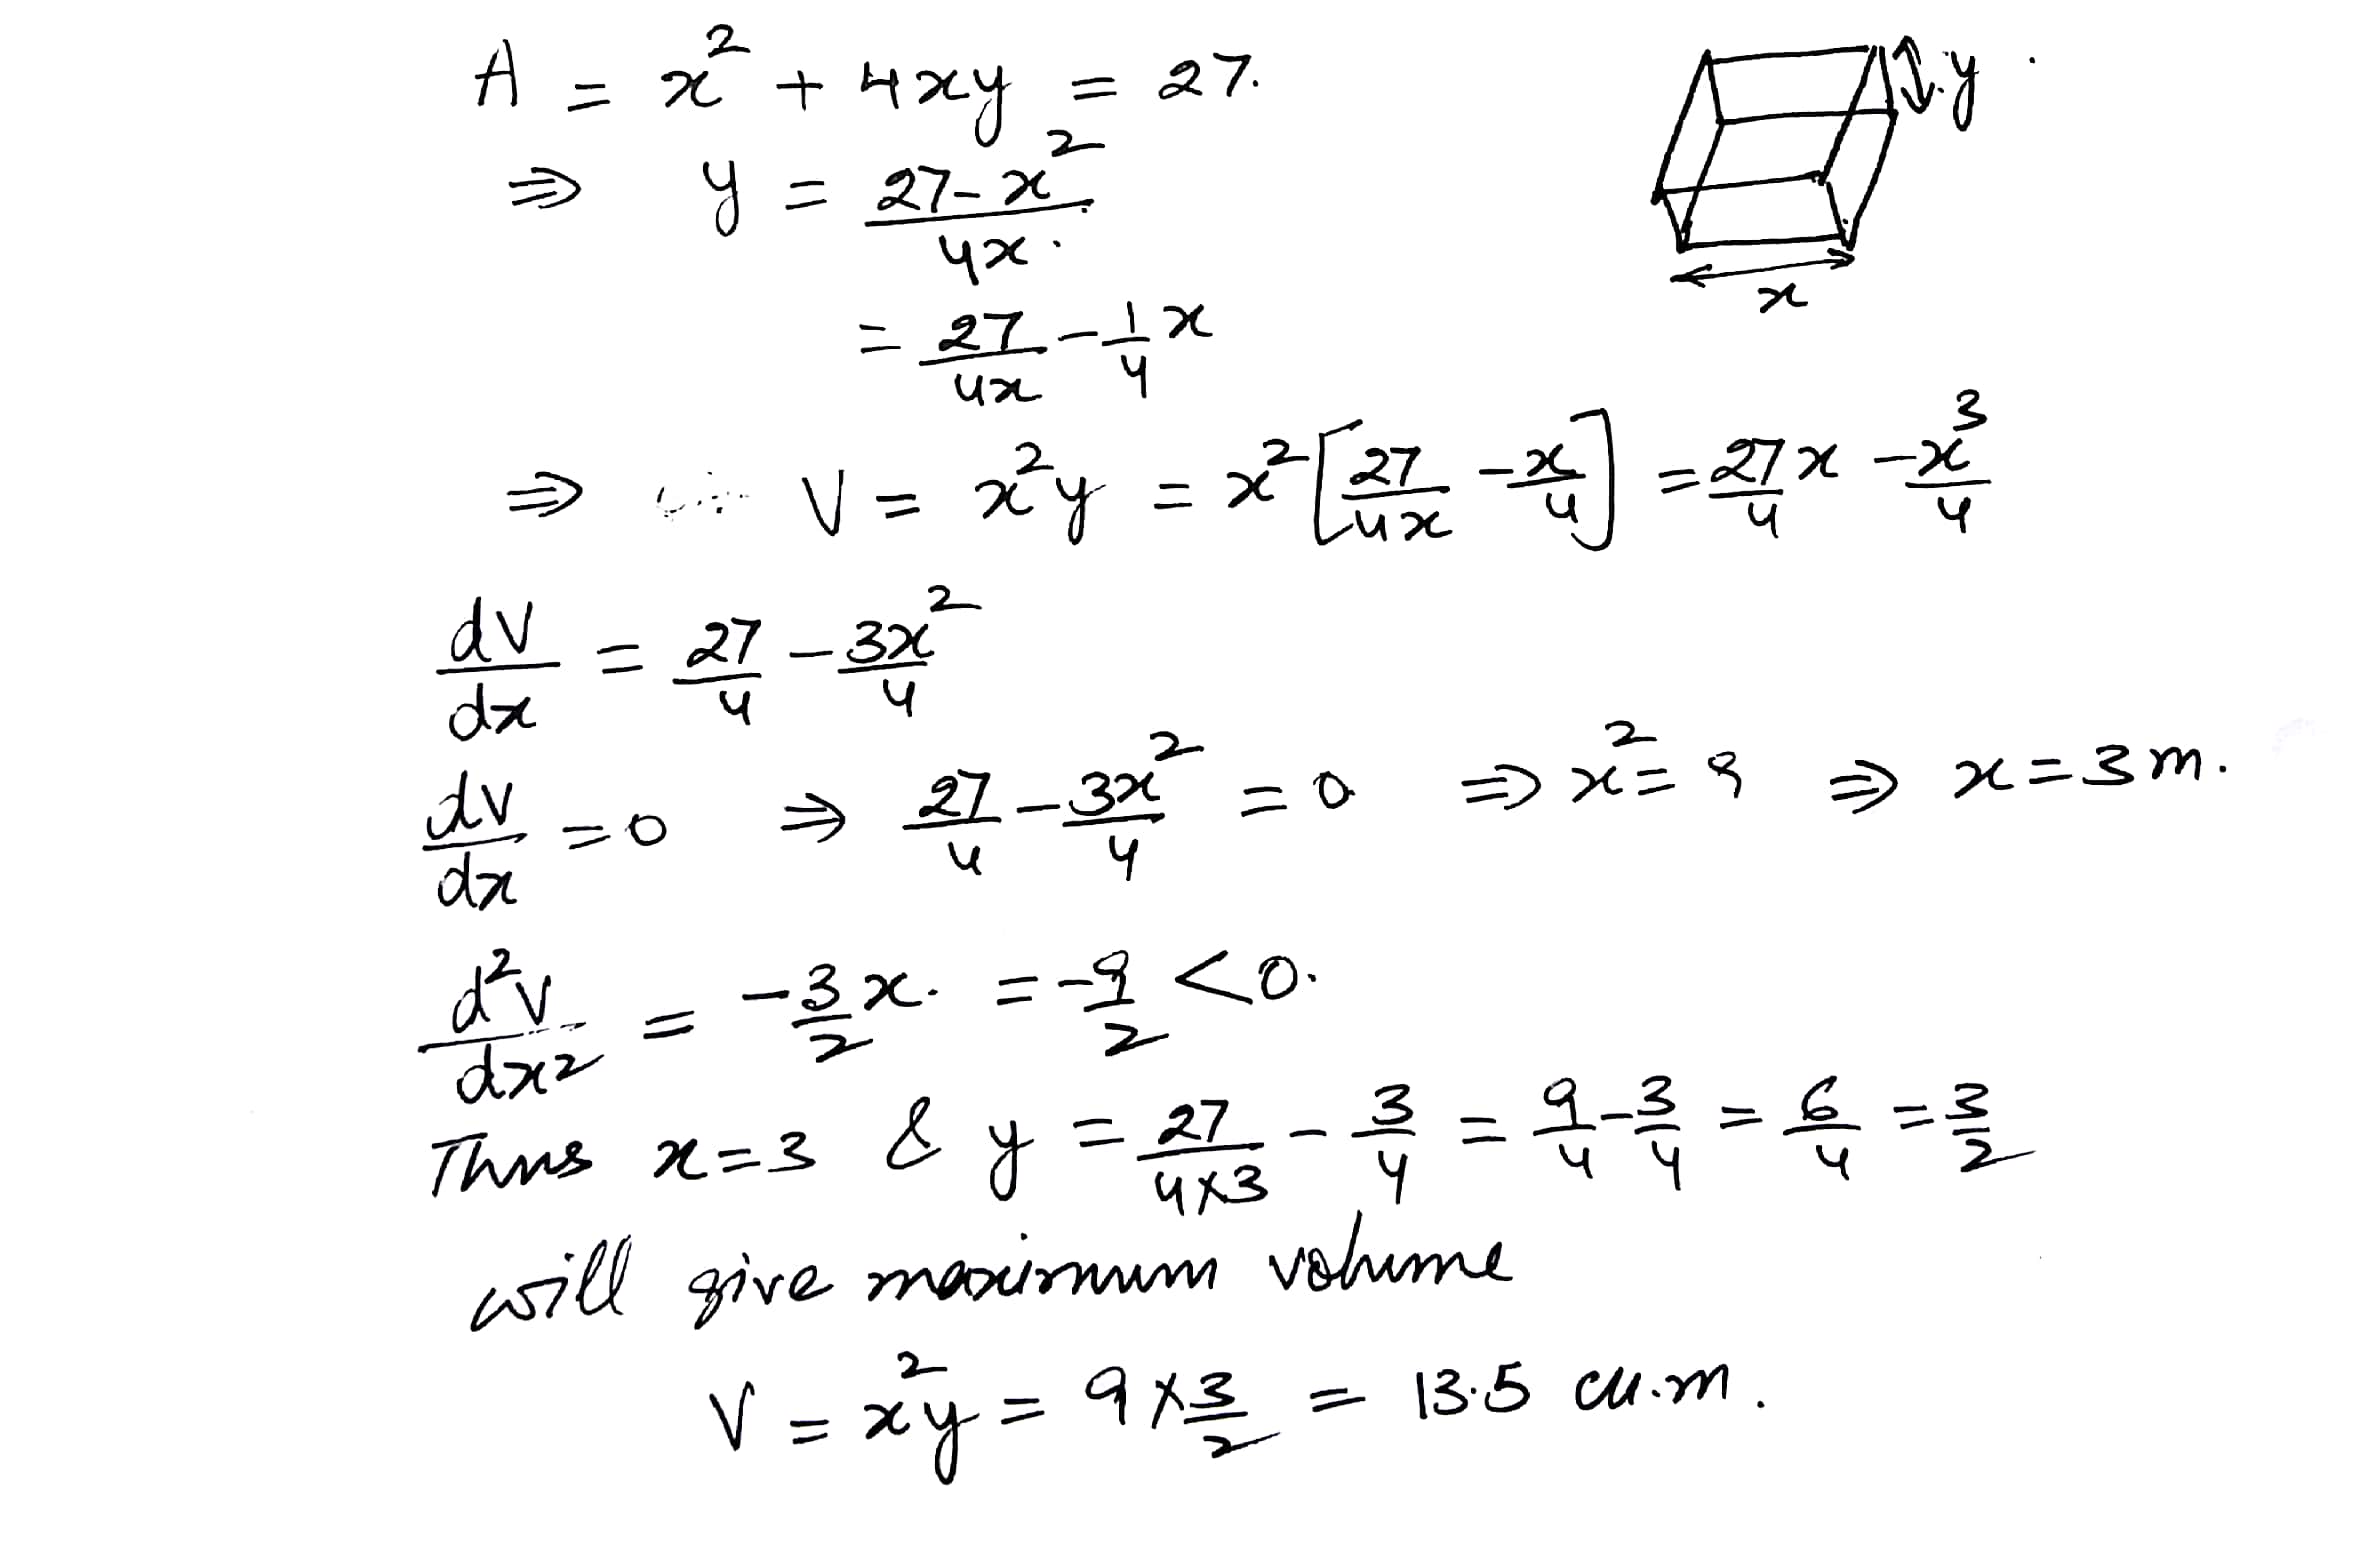 A = x² + 4xy = 27.
y.
⇒ y = (27 - x²)/(4x).
= 27/(4x) - 1/4 x
x
⇒ V = x²y = x² [27/(4x) - x/4] = 27/4 x - x³/4
dV/dx = 27/4 - 3x²/4
dV/dx = 0 ⇒ 27/4 - 3x²/4 = 0 ⇒ x² = 9 ⇒ x = 3 m.
d²V/dx² = -3/2 x. = -9/2 < 0.
Thus x = 3 & y = 27/(4×3) - 3/4 = 9/4 - 3/4 = 6/4 = 3/2
will give maximum volume
V = x²y = 9 × 3/2 = 13.5 cu.m.